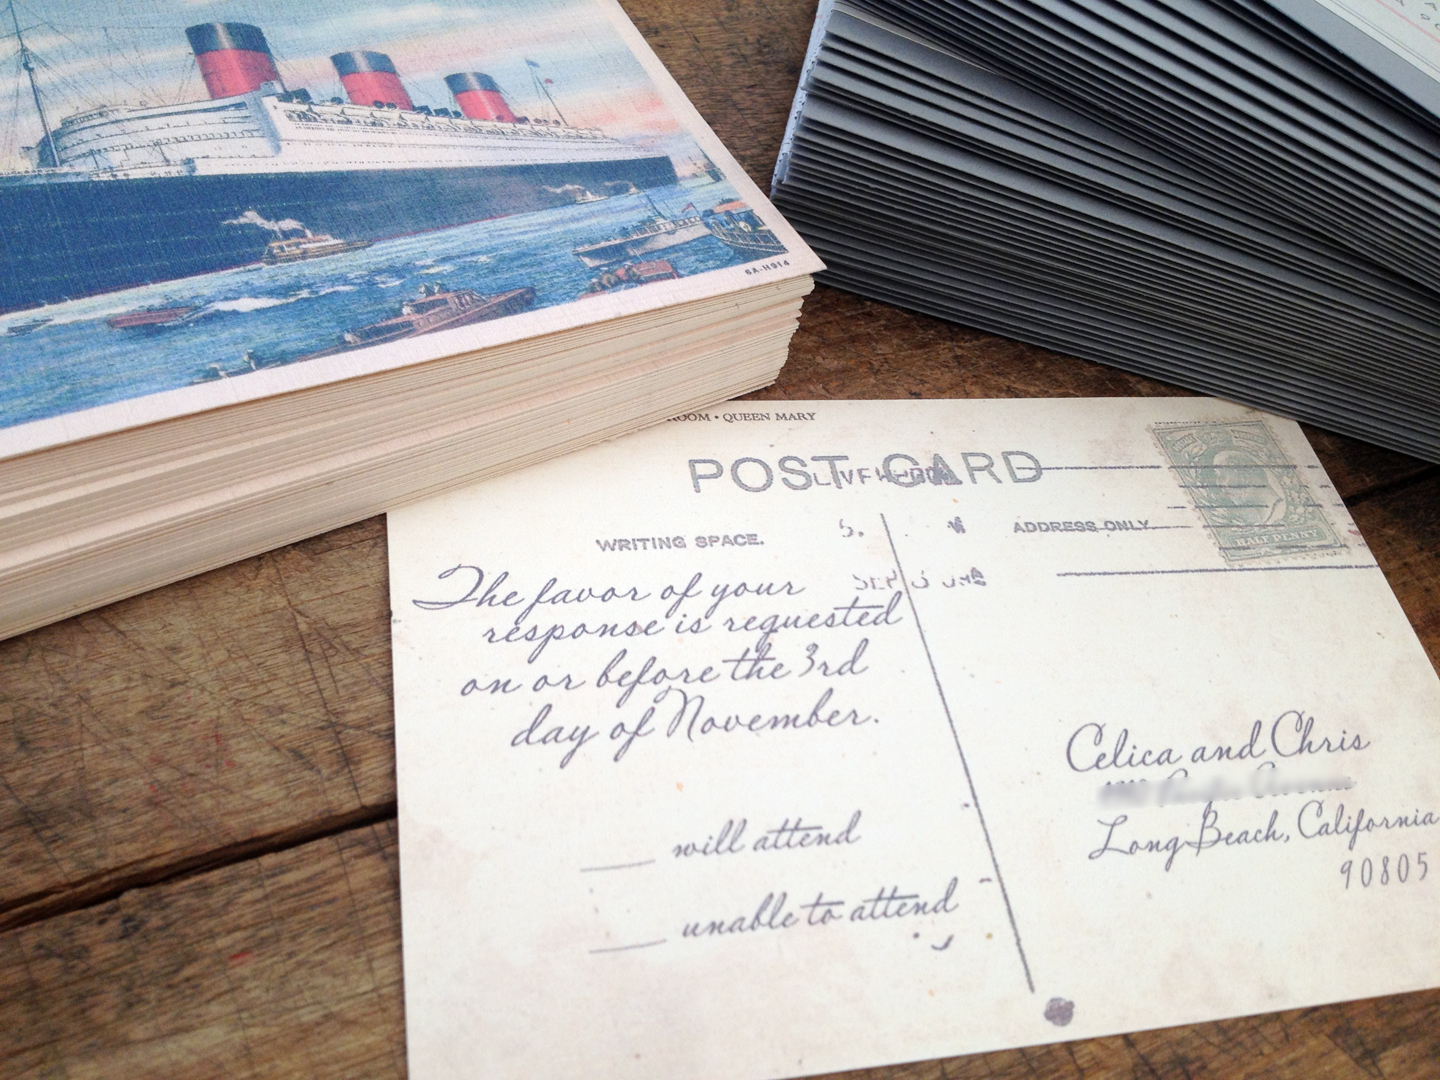 6A-H914
ROOM • QUEEN MARY
POST CARD
WRITING SPACE.
ADDRESS ONLY
HALF PENNY
The favor of your
response is requested
on or before the 3rd
day of November.
___ will attend
___ unable to attend
Celica and Chris
Long Beach, California
90805